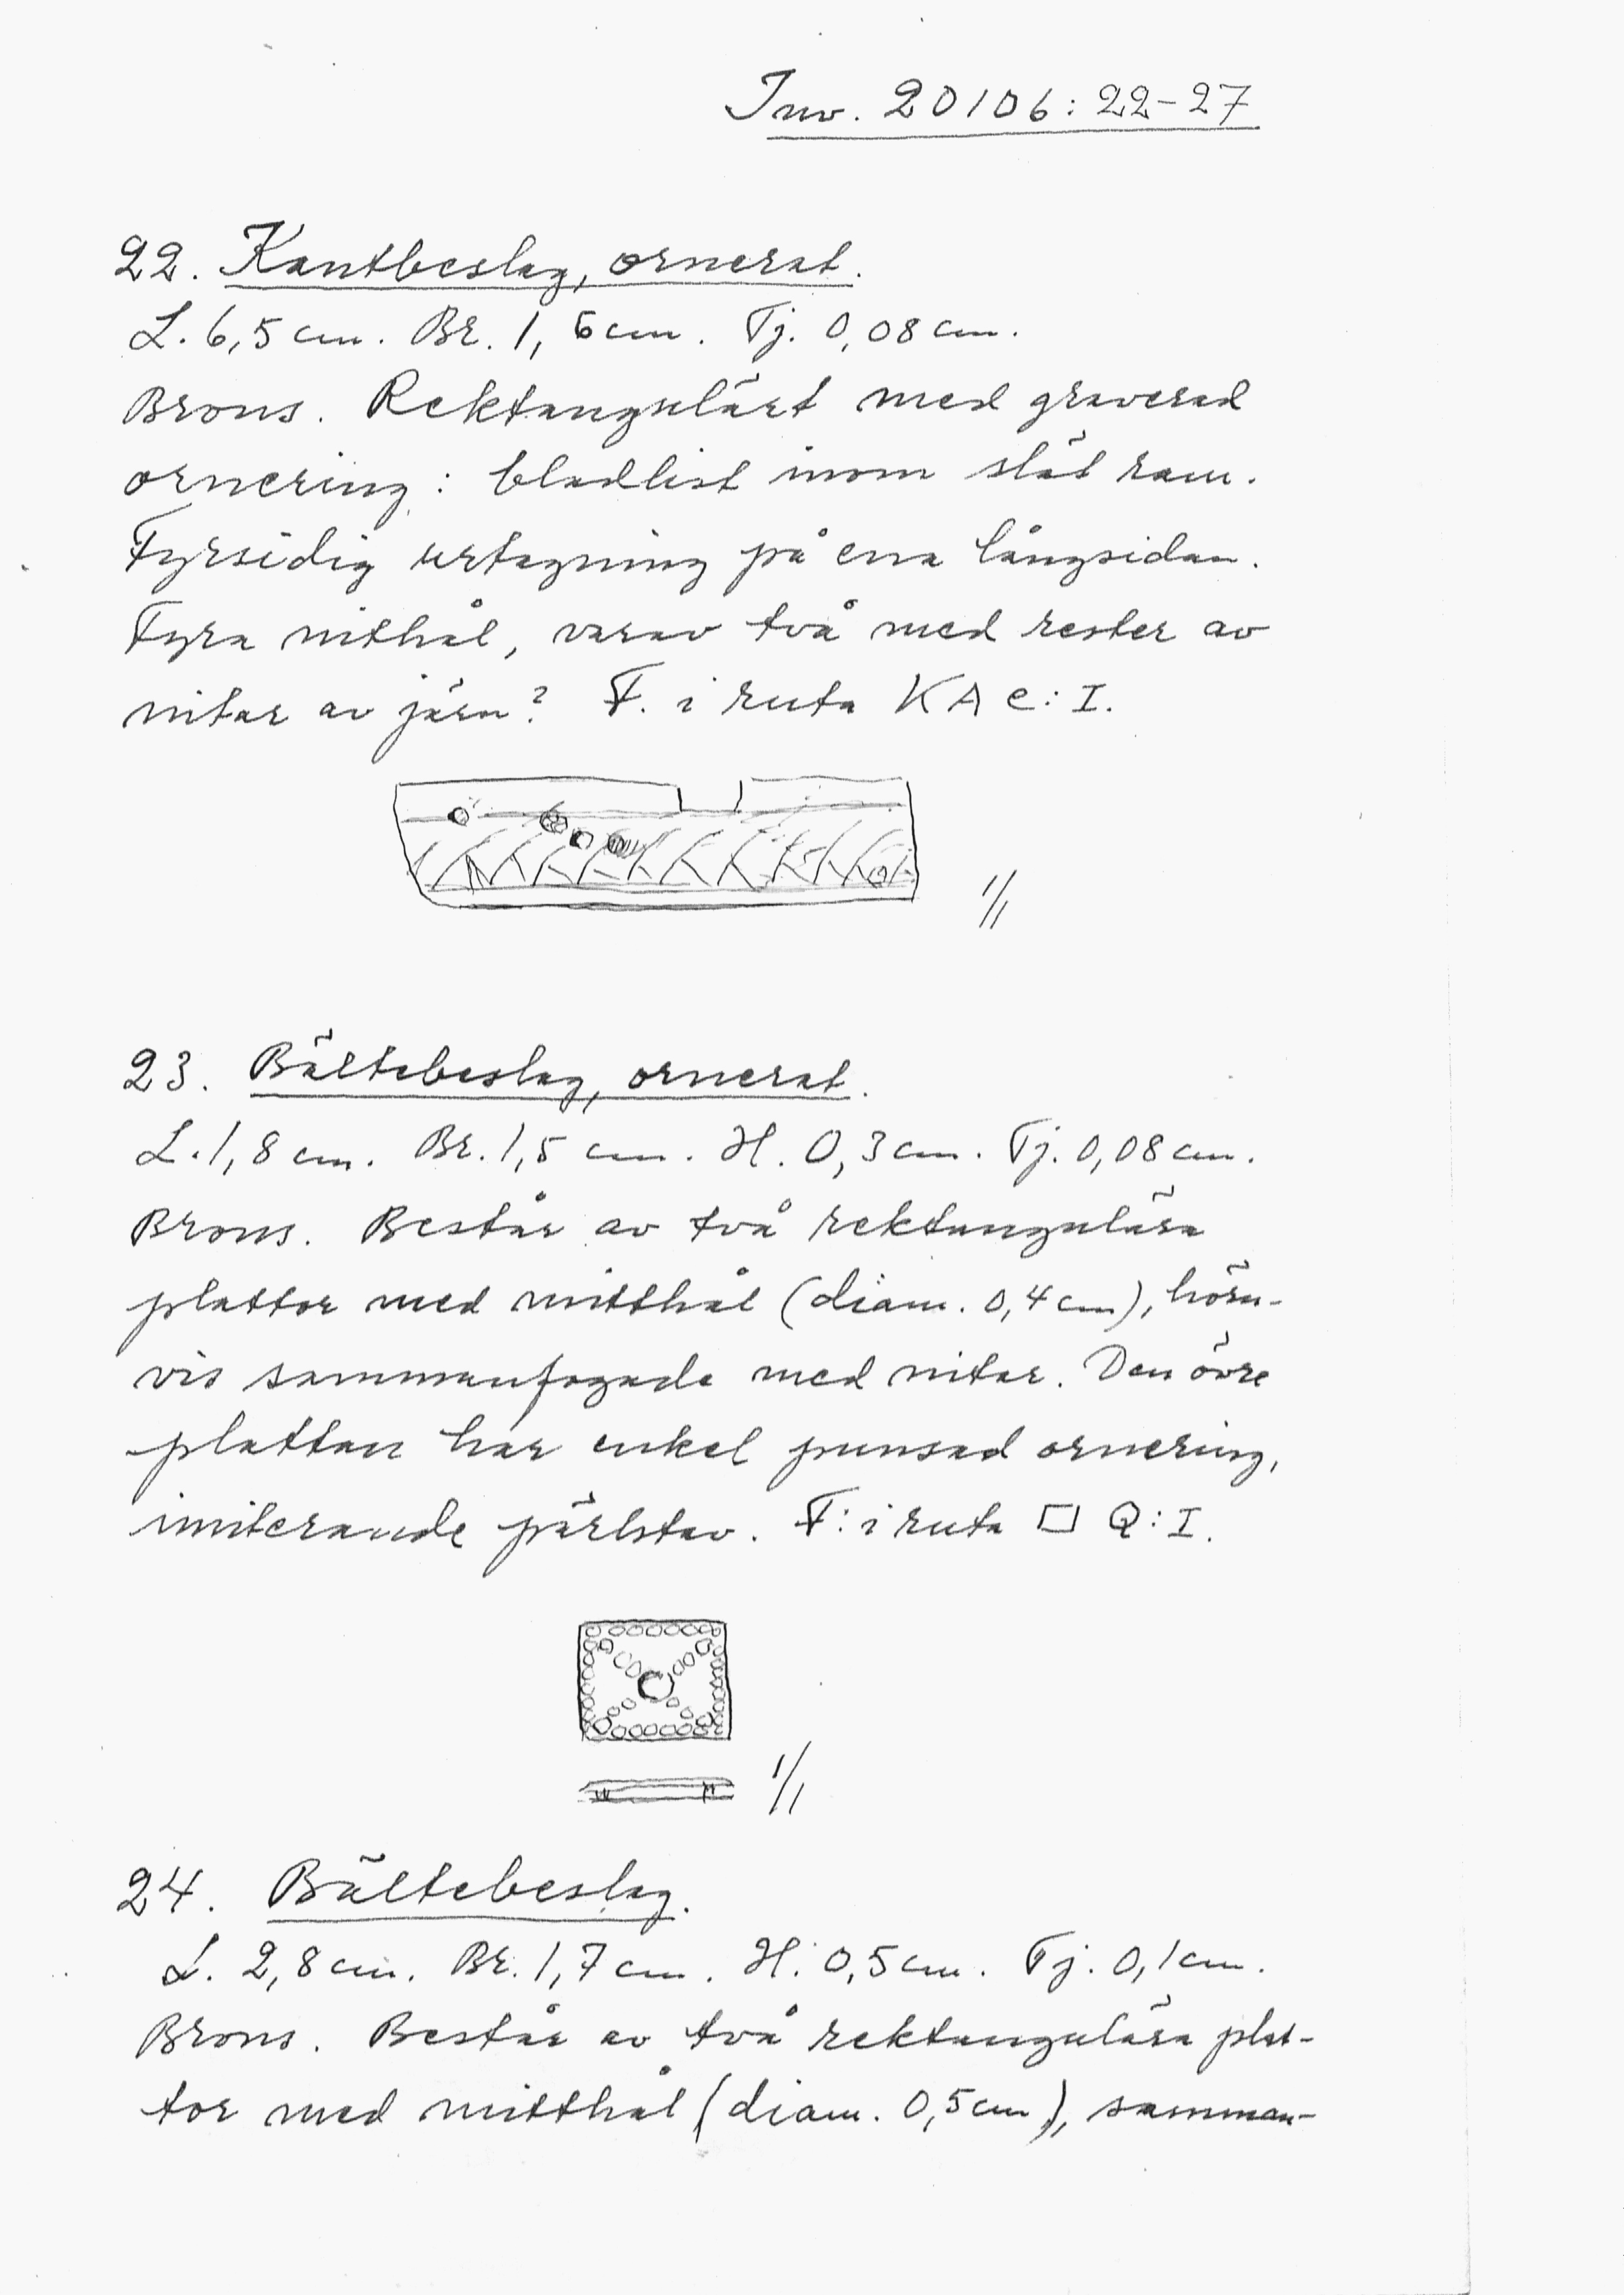 Inv. 20106: 22-27
22. Kantbeslag, ornerat.
L. 6,5 cm. Br. 1,6 cm. Tj. 0,08 cm.
Brons. Rektangulärt med graverad
ornering: bladlist inom slät ram.
Fyrsidig urtagning på ena långsidan.
Fyra nithål, varav två med rester av
nitar av järn? F. i ruta KA C:I.
1/1
23. Bältebeslag, ornerat.
L. 1,8 cm. Br. 1,5 cm. H. 0,3 cm. Tj. 0,08 cm.
Brons. Består av två rektangulära
plattor med mitthål (diam. 0,4 cm), hörn-
vis sammanfogade med nitar. Den övre
plattan har enkel punsad ornering,
imiterande pärlstav. F: i ruta □ Q:I.
1/1
24. Bältebeslag.
L. 2,8 cm. Br. 1,7 cm. H. 0,5 cm. Tj. 0,1 cm.
Brons. Består av två rektangulära plat-
tor med mitthål (diam. 0,5 cm), samman-